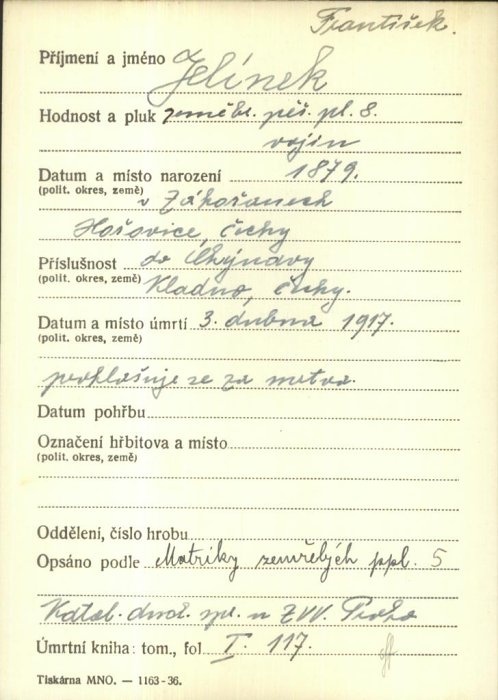 František.
Příjmení a jméno Jelínek
Hodnost a pluk zeměbr. pěš. pl. 8.
vojín
Datum a místo narození 1879.
(polit. okres, země) v Záhořanech
Hořovice, Čechy
Příslušnost do Chyňavy
(polit. okres, země) Kladno, Čechy.
Datum a místo úmrtí 3. dubna 1917.
(polit. okres, země)
prohlašuje se za mrtva.
Datum pohřbu
Označení hřbitova a místo
(polit. okres, země)
Oddělení, číslo hrobu
Opsáno podle Matriky zemřelých ppl. 5
Katol. duch. spr. u ZVV. Praha
Úmrtní kniha: tom., fol I. 117.
Tiskárna MNO. — 1163-36.